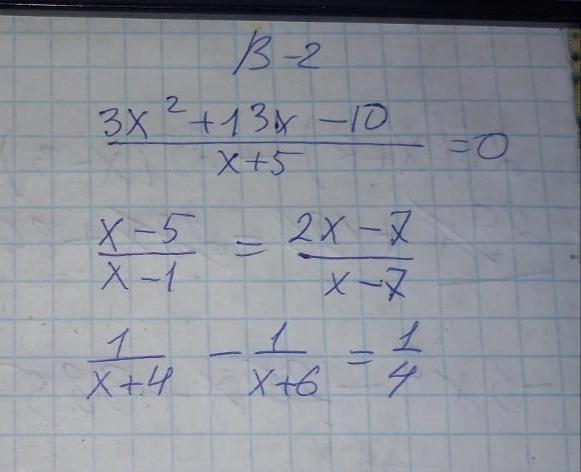 В-2
(3x² + 13x - 10)/(x+5) = 0
(x-5)/(x-1) = (2x-7)/(x-7)
1/(x+4) - 1/(x+6) = 1/4